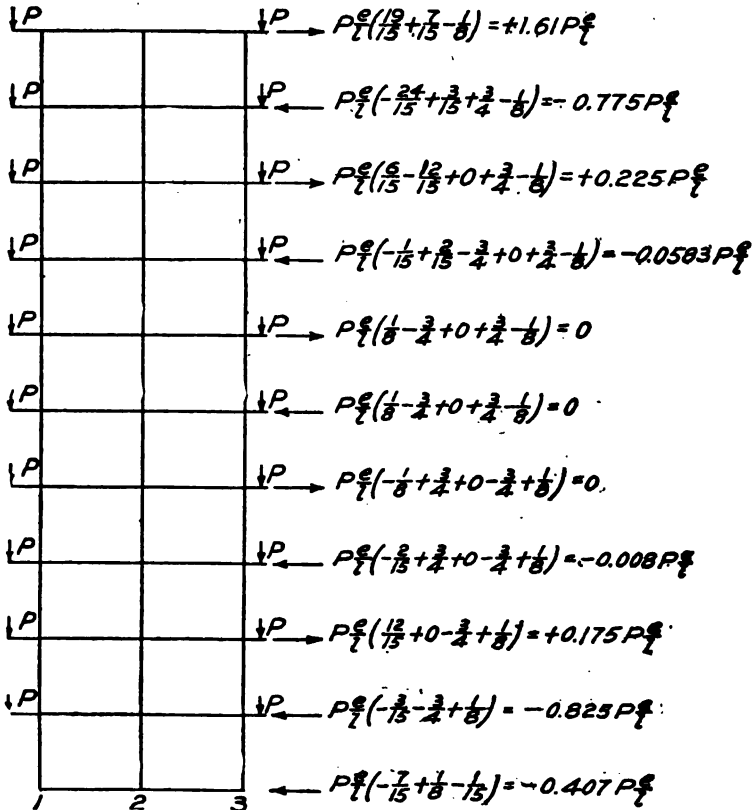 P P P e/l (19/15 + 7/15 - 1/8) = +1.61 P e/l
P P P e/l (-24/15 + 3/15 + 3/4 - 1/8) = - 0.775 P e/l
P P P e/l (6/15 - 12/15 + 0 + 3/4 - 1/8) = +0.225 P e/l
P P P e/l (-1/15 + 2/15 - 3/4 + 0 + 3/4 - 1/8) = -0.0583 P e/l
P P P e/l (1/8 - 3/4 + 0 + 3/4 - 1/8) = 0
P P P e/l (1/8 - 3/4 + 0 + 3/4 - 1/8) = 0
P P P e/l (-1/8 + 3/4 + 0 - 3/4 + 1/8) = 0
P P P e/l (-2/15 + 3/4 + 0 - 3/4 + 1/8) = -0.008 P e/l
P P P e/l (12/15 + 0 - 3/4 + 1/8) = +0.175 P e/l
P P P e/l (-3/15 - 3/4 + 1/8) = -0.825 P e/l
1 2 3 P e/l (-7/15 + 1/8 - 1/15) = -0.407 P e/l